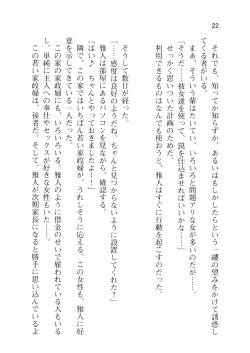 22
それでも、知ってか知らずか、あるいはもしかしたらという一縷の望みをかけて誘惑し
てくる者がいる。
まあ、そういう輩はたいてい、いろいろと問題アリな女が多いのだが……
「そうだ……彼女達を使って、罠を仕込まればいいのかな……」
せっかく思いついた計画のために。
利用できるものはなんでも使おうと、雅人はすぐに行動を起こすのだった。
そうして数日が経った。
「……感度は良好のようだね。ちゃんと見つからないように設置してくれた？」
雅人は部屋にあるパソコンを見ながら、確認する。
「はい♪　ちゃんとやっておきましたよー！」
隣で、この家ではいちばん若い家政婦が、うれしそうに応える。この女性も、雅人に好
意を示してきている一人だった。
この家の家政婦にもいろいろいる。雅人のように借金のせいで雇われている人もいる
し、単純に主人への奉仕やセックスが好きな女性もいた──。
この若い家政婦は、後者だ。そして、雅人が次期家長になると勝手に思い込んでいるよ